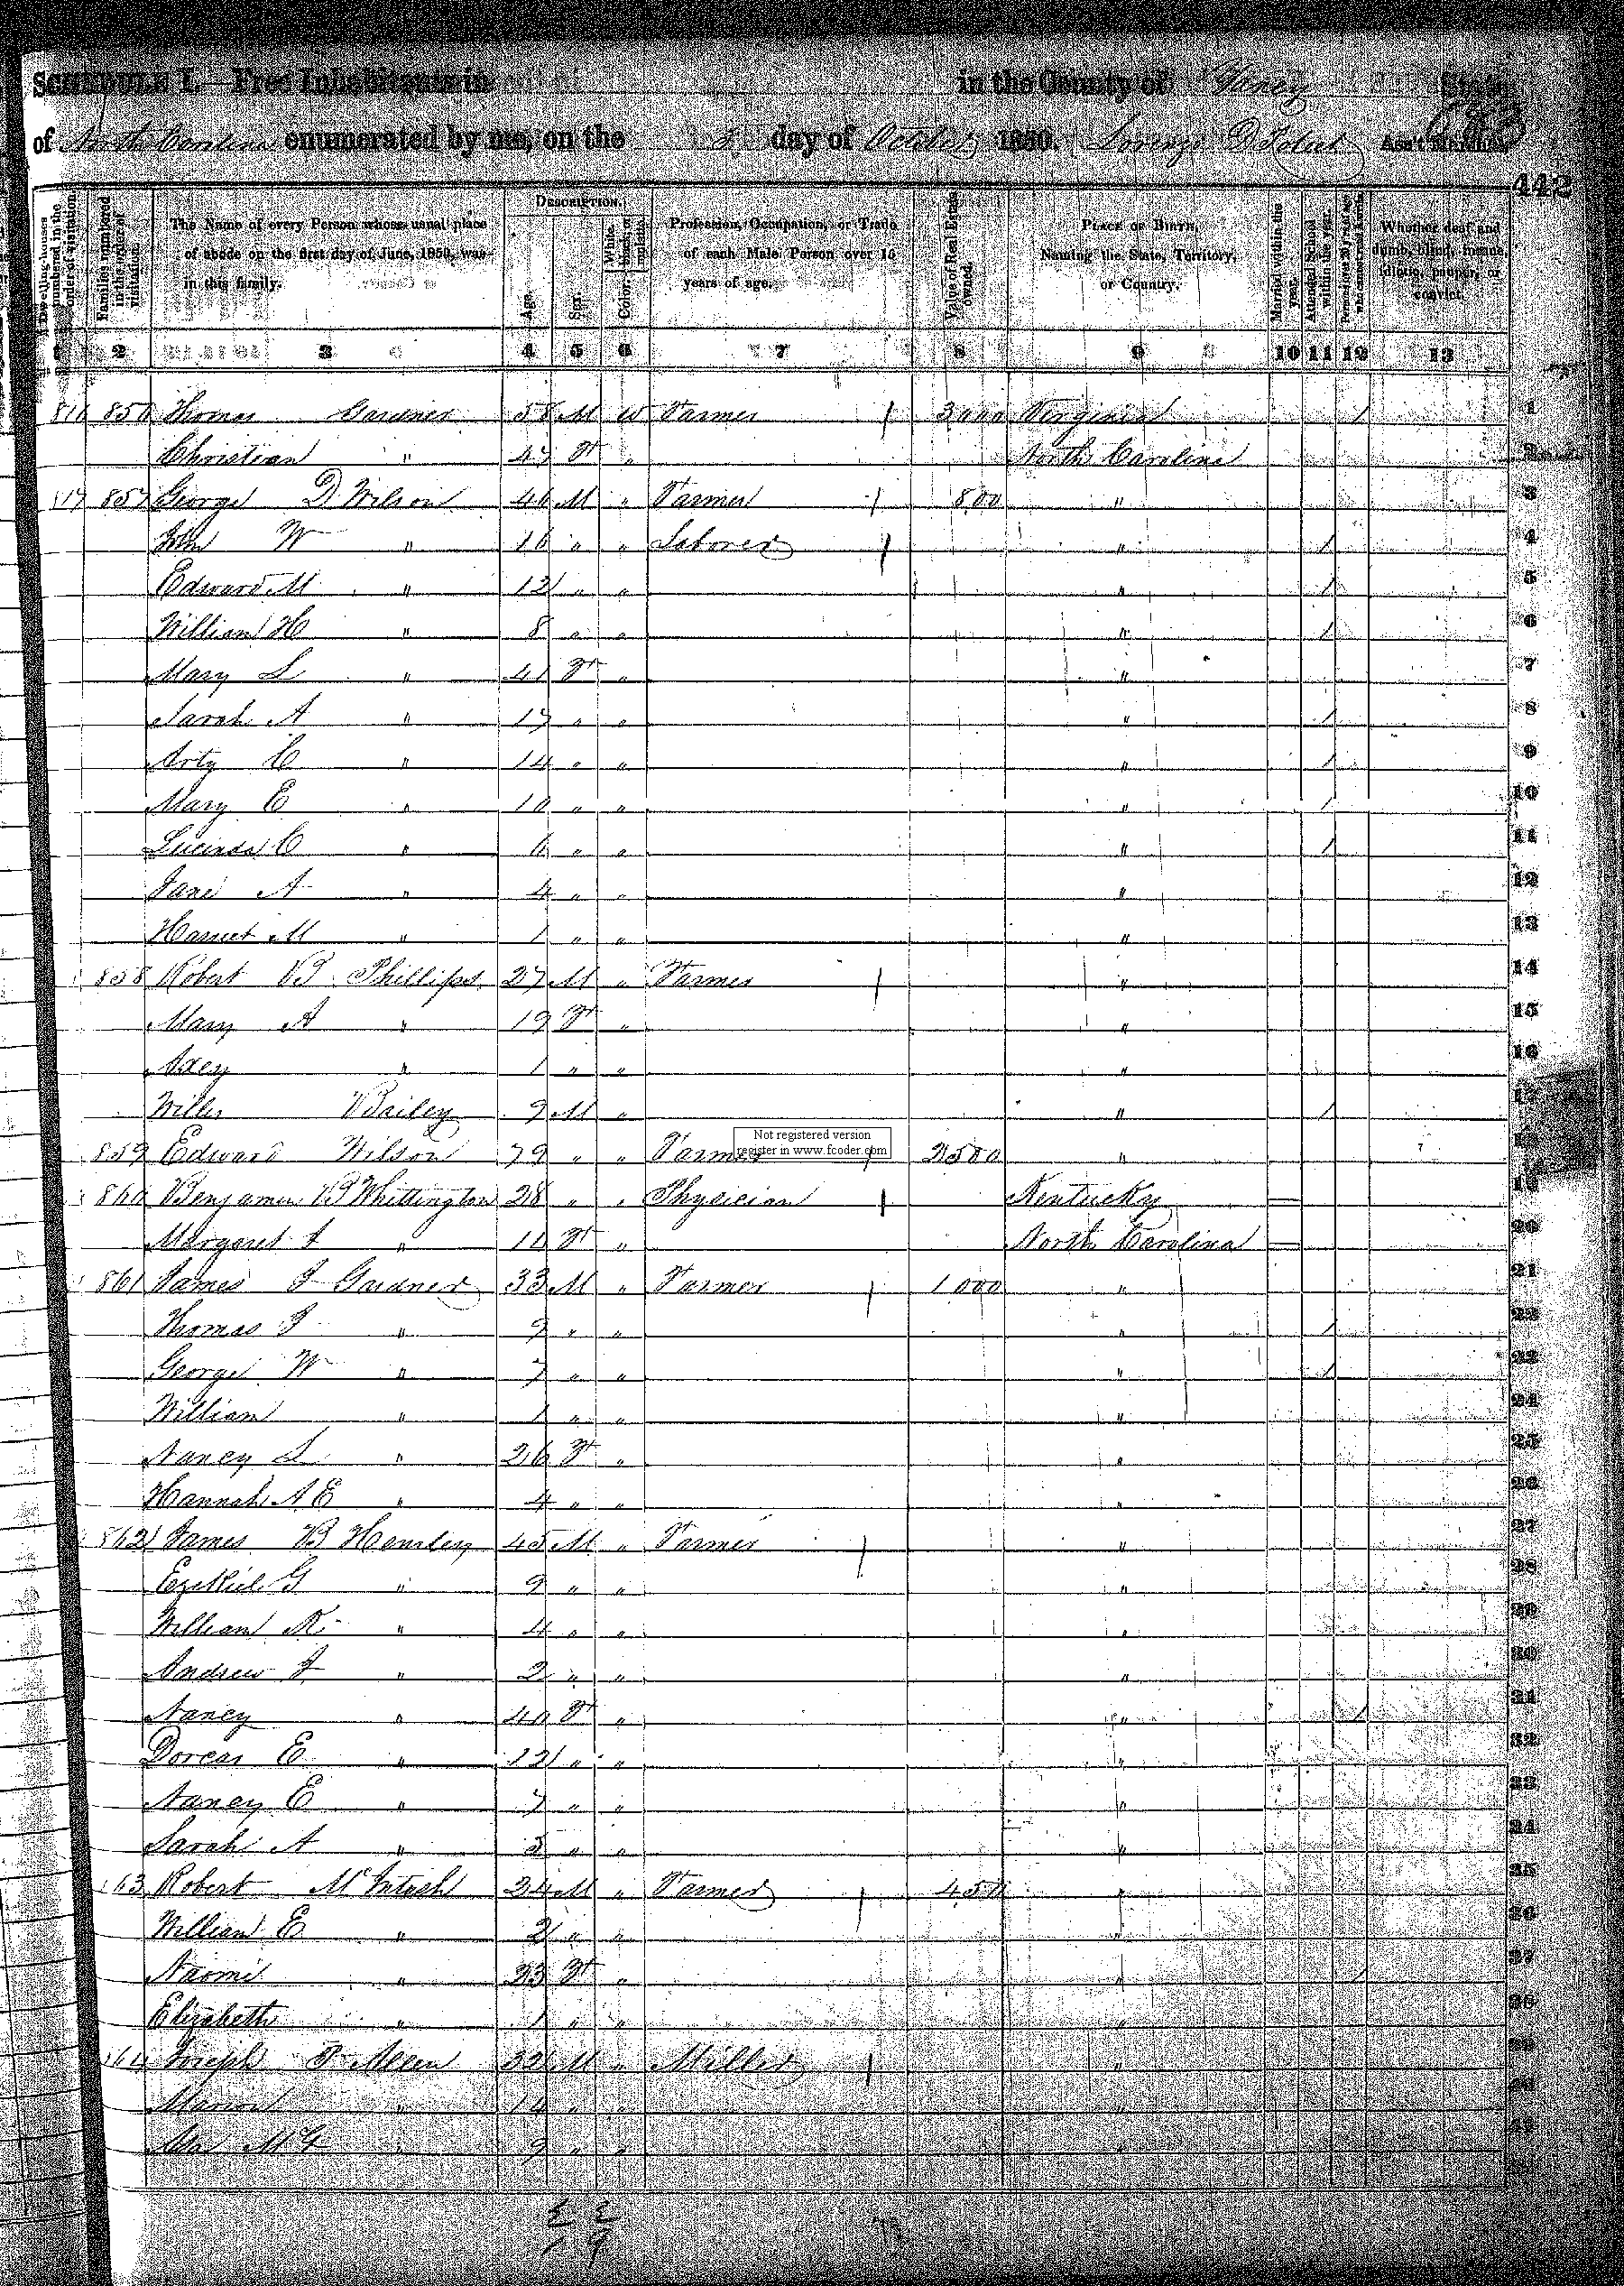 SCHEDULE I.—Free Inhabitants in in the County of Yancy State
of North Carolina enumerated by me, on the day of October 1850. Lorenzo D Ass't Marshal.
442
Dwelling-houses numbered in the order of visitation.
Families numbered in the order of visitation.
The Name of every Person whose usual place of abode on the first day of June, 1850, was in this family.
DESCRIPTION.
Age.
Sex.
Color, White, black, or mulatto.
Profession, Occupation, or Trade of each Male Person over 15 years of age.
Value of Real Estate owned.
PLACE OF BIRTH, Naming the State, Territory, or Country.
Married within the year.
Attended School within the year.
Persons over 20 y'rs of age who cannot read & write.
Whether deaf and dumb, blind, insane, idiotic, pauper, or convict.
1 2 3 4 5 6 7 8 9 10 11 12 13
816 856 Thomas Gardner 58 M W Farmer 3000 Virginia / 1
Christian " 47 F " North Carolina 2
817 857 George D Wilson 46 M " Farmer 800 " 3
John W " 16 " " Laborer " / 4
Edward M " 12 " " " / 5
William H " 8 " " " / 6
Mary L " 41 F " " 7
Sarah A " 17 " " " / 8
Arty C " 14 " " " / 9
Mary E " 10 " " " / 10
Lucinda C " 6 " " " / 11
Jane A " 4 " " " 12
Harriet M " 1 " " " 13
858 Robert B Phillips 27 M " Farmer " 14
Mary A " 19 F " " 15
Axey " 1 " " " 16
Willer Bailey 9 M " " / 17
859 Edward Wilson 79 " " Farmer 2500 " 18
Not registered version
register in www.fcoder.com
860 Benjamin B Whittington 28 " " Physician Kentucky — 19
Margaret J " F " North Carolina — 20
861 James J Gardner 33 M " Farmer 1000 " 21
Thomas J " 9 " " " / 22
George W " 7 " " " / 23
William " 1 " " " 24
Nancy L " 26 F " " 25
Hannah A E " 4 " " " 26
862 James B Hensley 45 M " Farmer " 27
Ezekiel G " 9 " " " 28
William R " 4 " " " 29
Andrew J " 2 " " " 30
Nancy " 40 F " " / 31
Dorcas E " 12 " " " 32
Nancy E " 7 " " " 33
Sarah A " " " " 34
863 Robert McIntosh 24 M " Farmer 450 " 35
William E " 2 " " " 36
Naomi " 23 F " " / 37
Elizabeth " 1 " " " 38
864 Joseph P Allen 32 M " Miller " 39
Marion " 14 " " " 40
9 " "